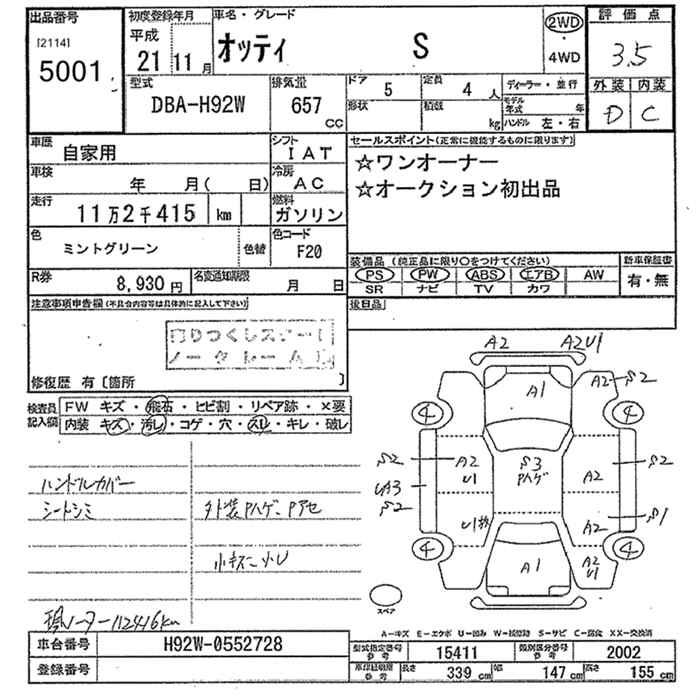 出品番号 初度登録年月 車名・グレード 2WD ・ 4WD 評価点
[2114] 5001 平成 21年 11月 オッティ S 3.5
型式 排気量 ドア 5 定員 4人 ディーラー・並行 外装 内装
DBA-H92W 657 CC 形状 積載 kg モデル年式 年 ハンドル 左・右 D C
車歴 自家用 シフト IAT セールスポイント(正常に機能するものに限ります)
車検 年 月( 日) 冷房 AC ☆ワンオーナー
走行 11万2千415 km 燃料 ガソリン ☆オークション初出品
色 ミントグリーン 色替 色コード F20
装備品 (純正品に限り○をつけてください) 新車保証書
R券 8,930円 名変通知期限 月 日 PS PW ABS エアB AW 有・無
SR ナビ TV カワ
注意事項申告欄(不具合内容等は具体的に記入して下さい) 後日品
修復歴 有〔箇所 〕
検査員記入欄 FW キズ・飛石・ヒビ割・リペア跡・×要
内装 キズ・汚レ・コゲ・穴・スレ・キレ・破レ
ハンドルカバー
シートシミ 外装Pハゲ、Pアセ
小キズ、小U
現メーター112416km
A2 A2U1
A1 A2 S2
4 4
S2 A2 S3 A2 S2
UA3 U1 Pハゲ
S2 U1 A2 S1
4 4
A1 A2 U1
スペア
A-キズ E-エクボ U-凹み W-板修跡 S-サビ C-腐食 XX-交換済
車台番号 H92W-0552728
登録番号
型式指定番号 参考 15411 類別区分番号 参考 2002
車体証明欄 参考 長さ 339 cm 幅 147 cm 高さ 155 cm